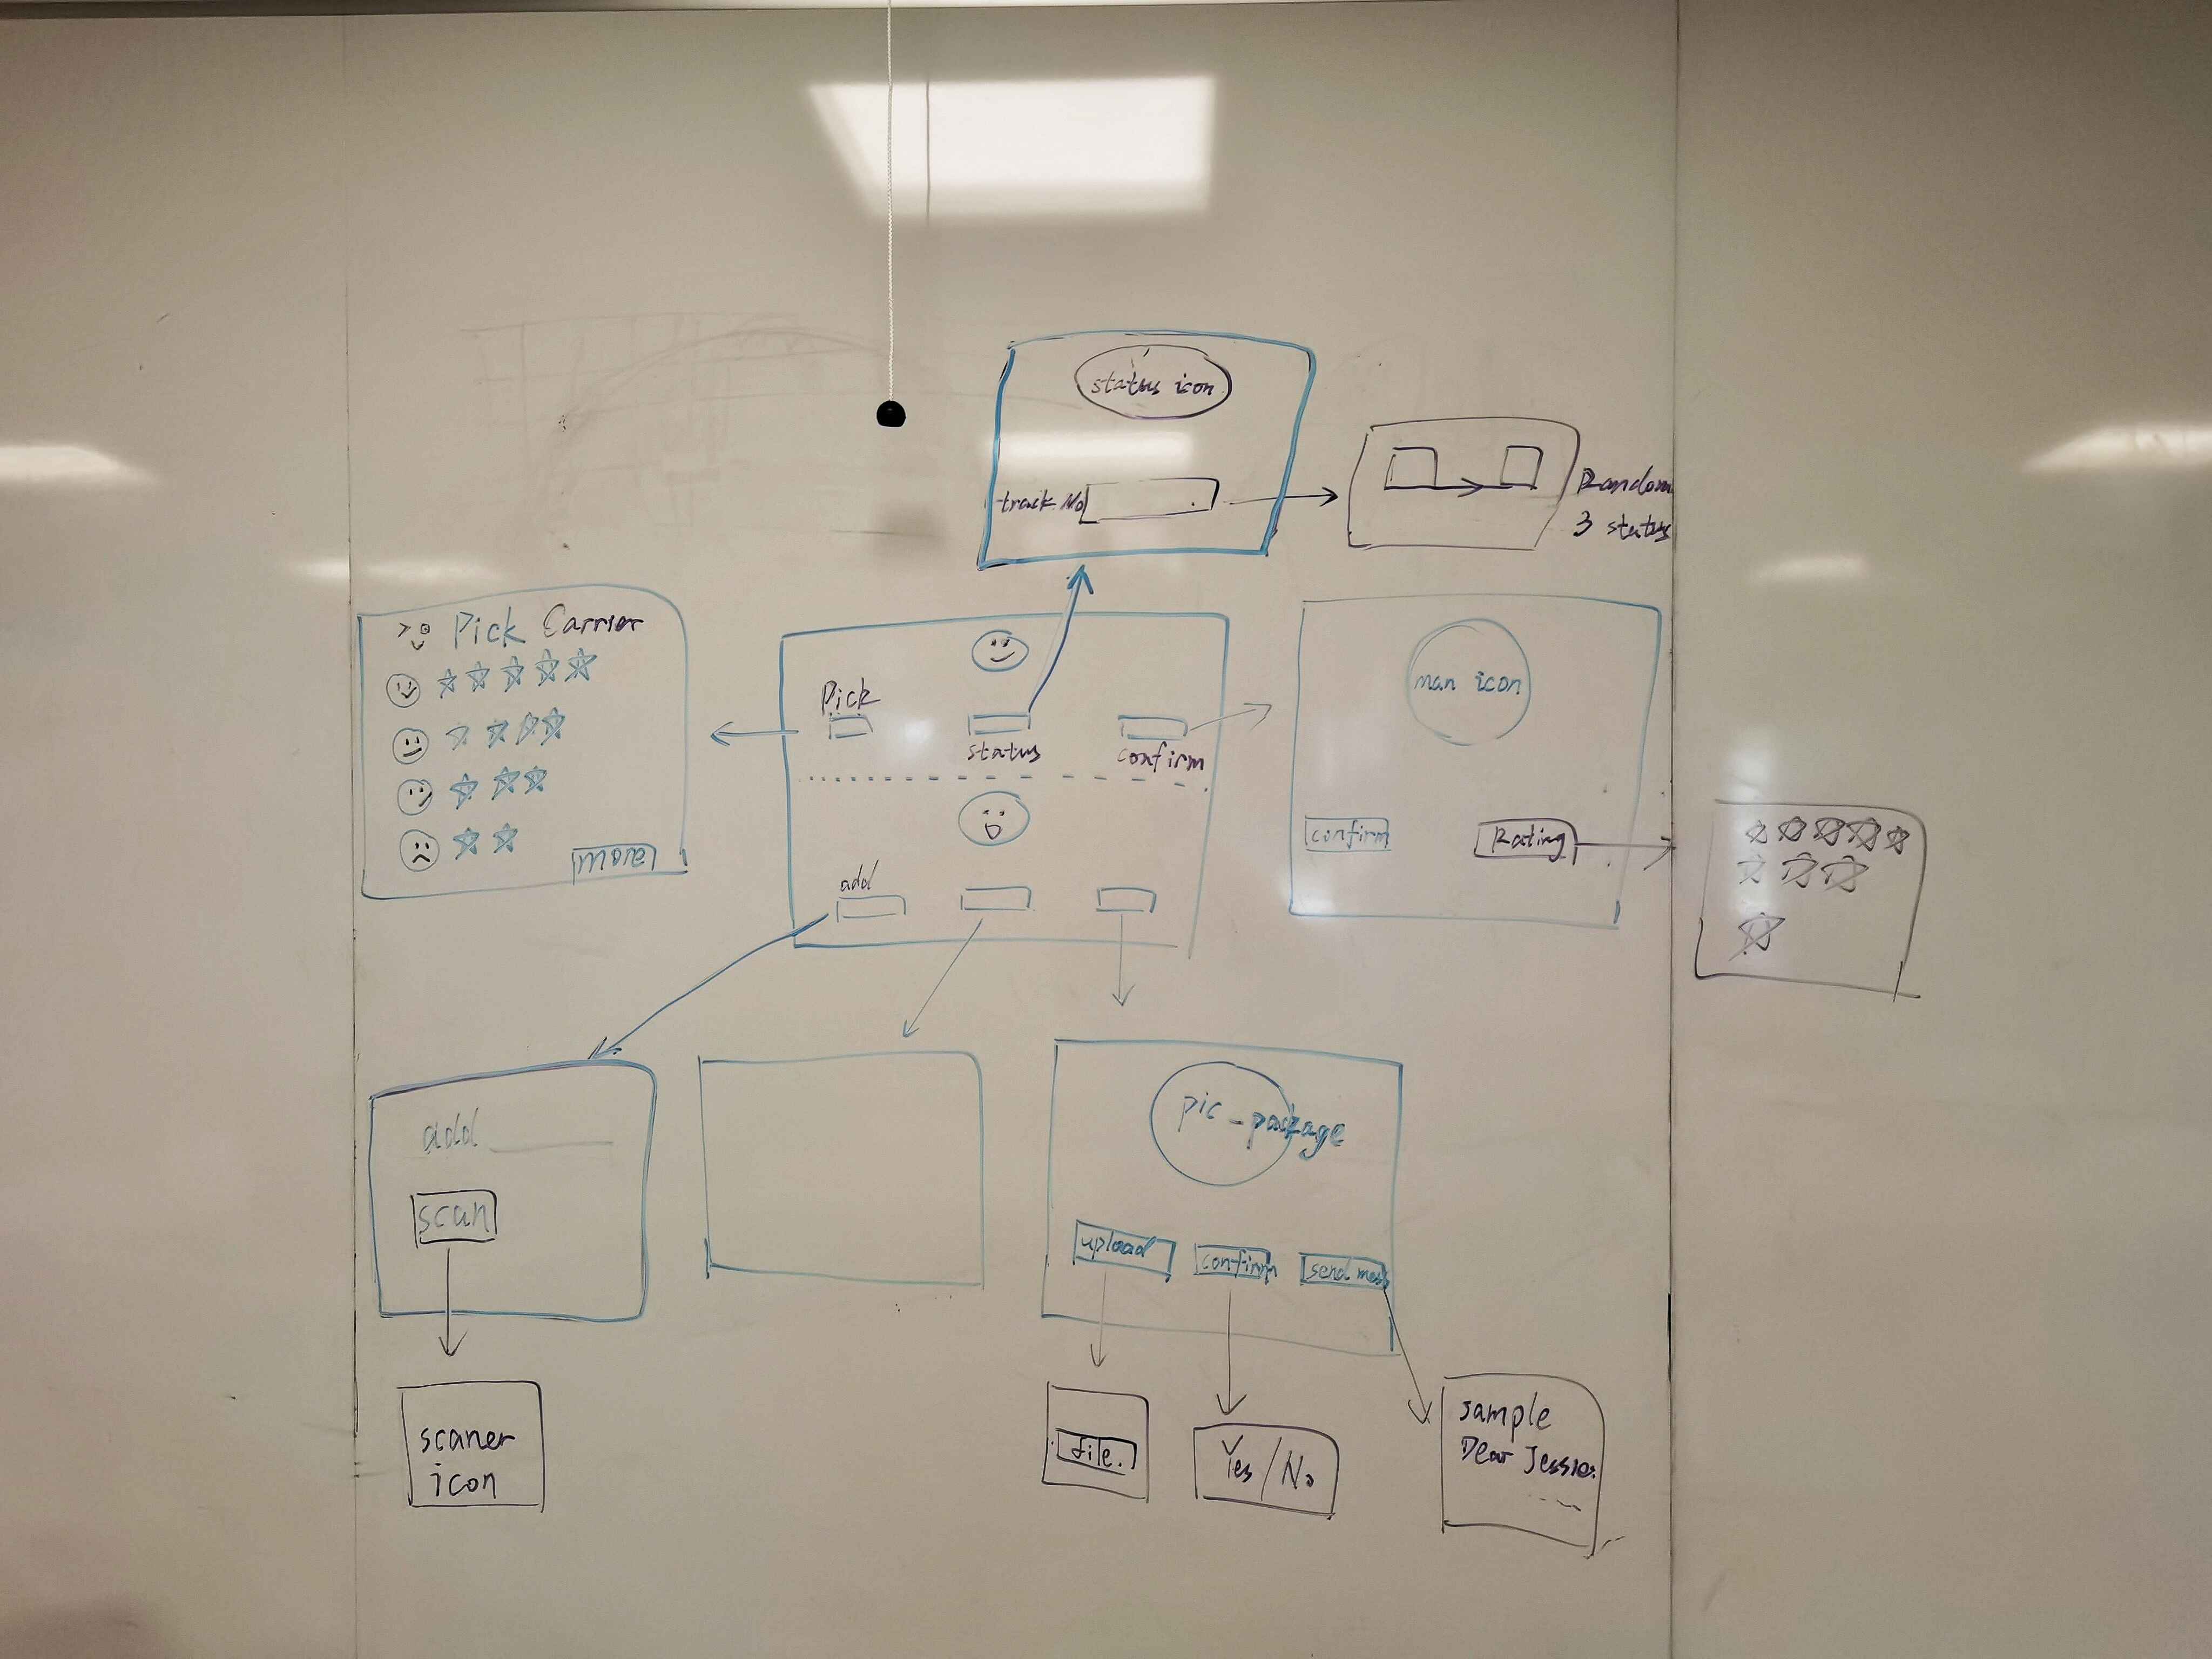 status icon
track No
Random
3 status
Pick Carrier
more
Pick
status
confirm
add
man icon
confirm
Rating
add
scan
scaner
icon
pic-package
upload
confirm
send mess
file.
Yes/No
sample
Dear Jessie